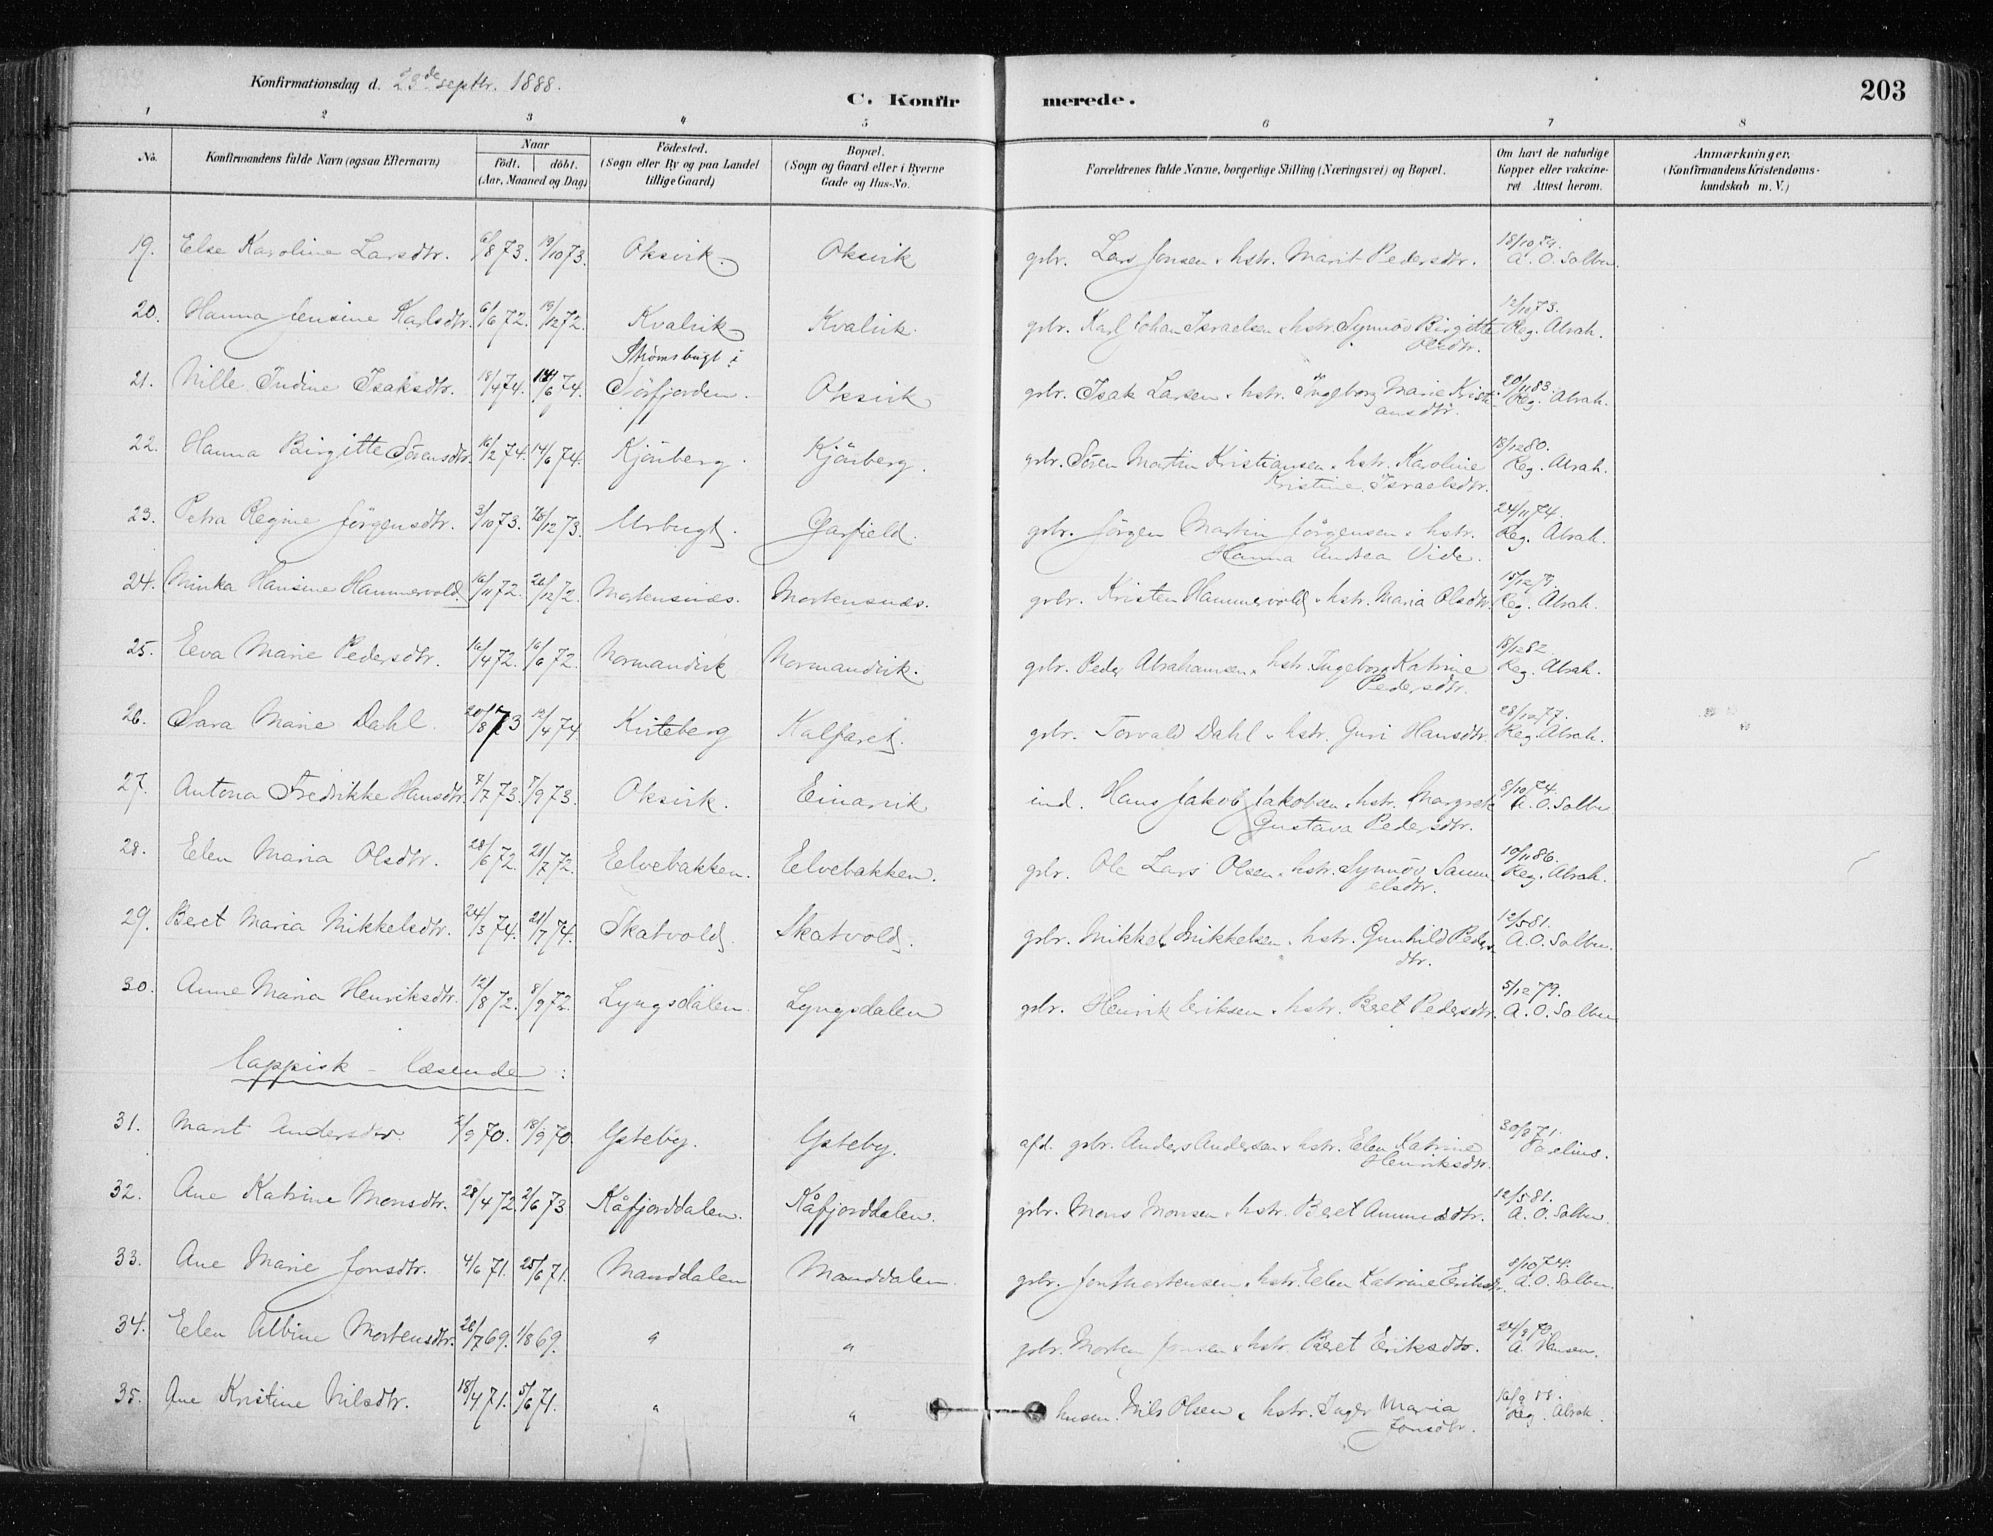 Konfirmationsdag d. 23de septbr. 1888.
C. Konfirmerede.
203
1 2 3 4 5 6 7 8
No. Konfirmandens fulde Navn (ogsaa Efternavn) Naar födt. döbt. (Aar, Maaned og Dag) Födested. (Sogn eller By og paa Landet tillige Gaard) Bopæl. (Sogn og Gaard eller i Byerne Gade og Hus-No. Forældrenes fulde Navne, borgerlige Stilling (Næringsvei) og Bopæl. Om havt de naturlige Kopper eller vakcineret. Attest herom. Anmærkninger. (Konfirmandens Kristendomskundskab m. V.)
19. Else Karoline Larsdtr. 6/8 73. 19/10 73. Oksvik. Oksvik gbr. Lars Jonsen & hstr. Marit Pedersdtr. 18/10 74. A. O. Solbu
20. Hanna Jensine Karlsdtr. 6/6 72. 19/12 72. Kvalvik Kvalvik. gbr. Karl Johan Israelsen & hstr. Synnöv Birgitte Olsdtr. 12/10 73. Reg. Abrah.
21. Nille Indine Isaksdtr. 18/4 74. 14/6 74. Strømsbugt i Sörfjorden. Oksvik gbr. Isak Larsen & hstr. Ingeborg Marie Kristiansdtr. 20/11 83. Reg. Abrah.
22. Hanna Birgitte Sörensdtr. 16/2 74. 14/6 74. Kjösberg. Kjösberg. gbr. Sören Martin Kristiansen & hstr. Karoline Kristine Israelsdtr. 18/12 80. Reg. Abrah.
23. Petra Regine Jörgensdtr. 3/10 73. 28/12 73. Urbugt. Garfield. gbr. Jörgen Martin Jörgensen & hstr. Hanna Andrea Vide. 24/11 74. Reg. Abrah.
24. Minka Hansine Hammervold. 16/11 72. 26/12 72. Mortensnæs. Mortensnæs. gbr. Kristen Hammervold & hstr. Maria Olsdtr. Reg. Abrah.
25. Eeva Marie Pedersdtr. 16/4 72. 16/6 72. Normandvik Normandvik. gbr. Peder Abrahamsen & hstr. Ingeborg Katrine Pedersdtr. 18/12 82. Reg. Abrah.
26. Sara Marie Dahl. 73 12/4 74 Kviteberg Kalfaret. gbr. Torvald Dahl & hstr. Guri Hansdtr. 28/10 77. Reg. Abrah.
27. Antona Fredrikke Hansdtr. 8/7 73. 7/9 73. Oksvik. Einarvik ind. Hans Jakob Jakobsen & hstr. Margrete Gustava Pedersdtr. 9/10 74. A. O. Solbu
28. Elen Maria Olsdtr. 28/6 72. 21/7 72. Eelvebakken. Eelvebakken. gbr. Ole Lars Olsen & hstr. Synnöv Samuelsdtr. 10/11 86. Reg. Abrah.
29. Beret Maria Mikkelsdtr. 24/3 74. 21/7 74. Skatvold. Skatvold. gbr. Mikkel Mikkelsen & hstr. Gunhild Pedersdtr. 12/5 81. A. O. Solbu.
30. Anne Maria Henriksdtr. 12/8 72. 8/9 72. Lyngsdalen. Lyngsdalen gbr. Henrik Eriksen & hstr. Beret Pedersdtr. 5/12 79. A. O. Solbu
lappisk - læsende:
31. Marit Andersdtr. 2/9 70. 18/9 70. Ysteby. Ysteby. afd. gbr. Anders Andersen & hstr. Elen Katrine Henriksdtr. 71.
32. Ane Katrine Monsdtr. 28/4 72. 2/6 73 Kåfjorddalen. Kåfjorddalen. gbr. Mons Monsen & hstr. Beret Ammundsdtr. 12/5 81. A. O. Solbu.
33. Ane Marie Jonsdtr. 4/6 71. 25/6 71. Manddalen Manddalen. gbr. Jon Mortensen & hstr. Elen Katrine Eriksdtr. 9/10 74. A. O. Solbu.
34. Elen Albine Mortensdtr. 26/7 69. 1/8 69. " " gbr. Morten Jonsen & hstr. Beret Eriksdtr. A. Hansen.
35. Ane Kristine Nilsdtr. 18/4 71. 5/6 71. " " husm. Nils Olsen & hstr. Inger Maria Jonsdtr. 16/9 88. Reg. Abrah.